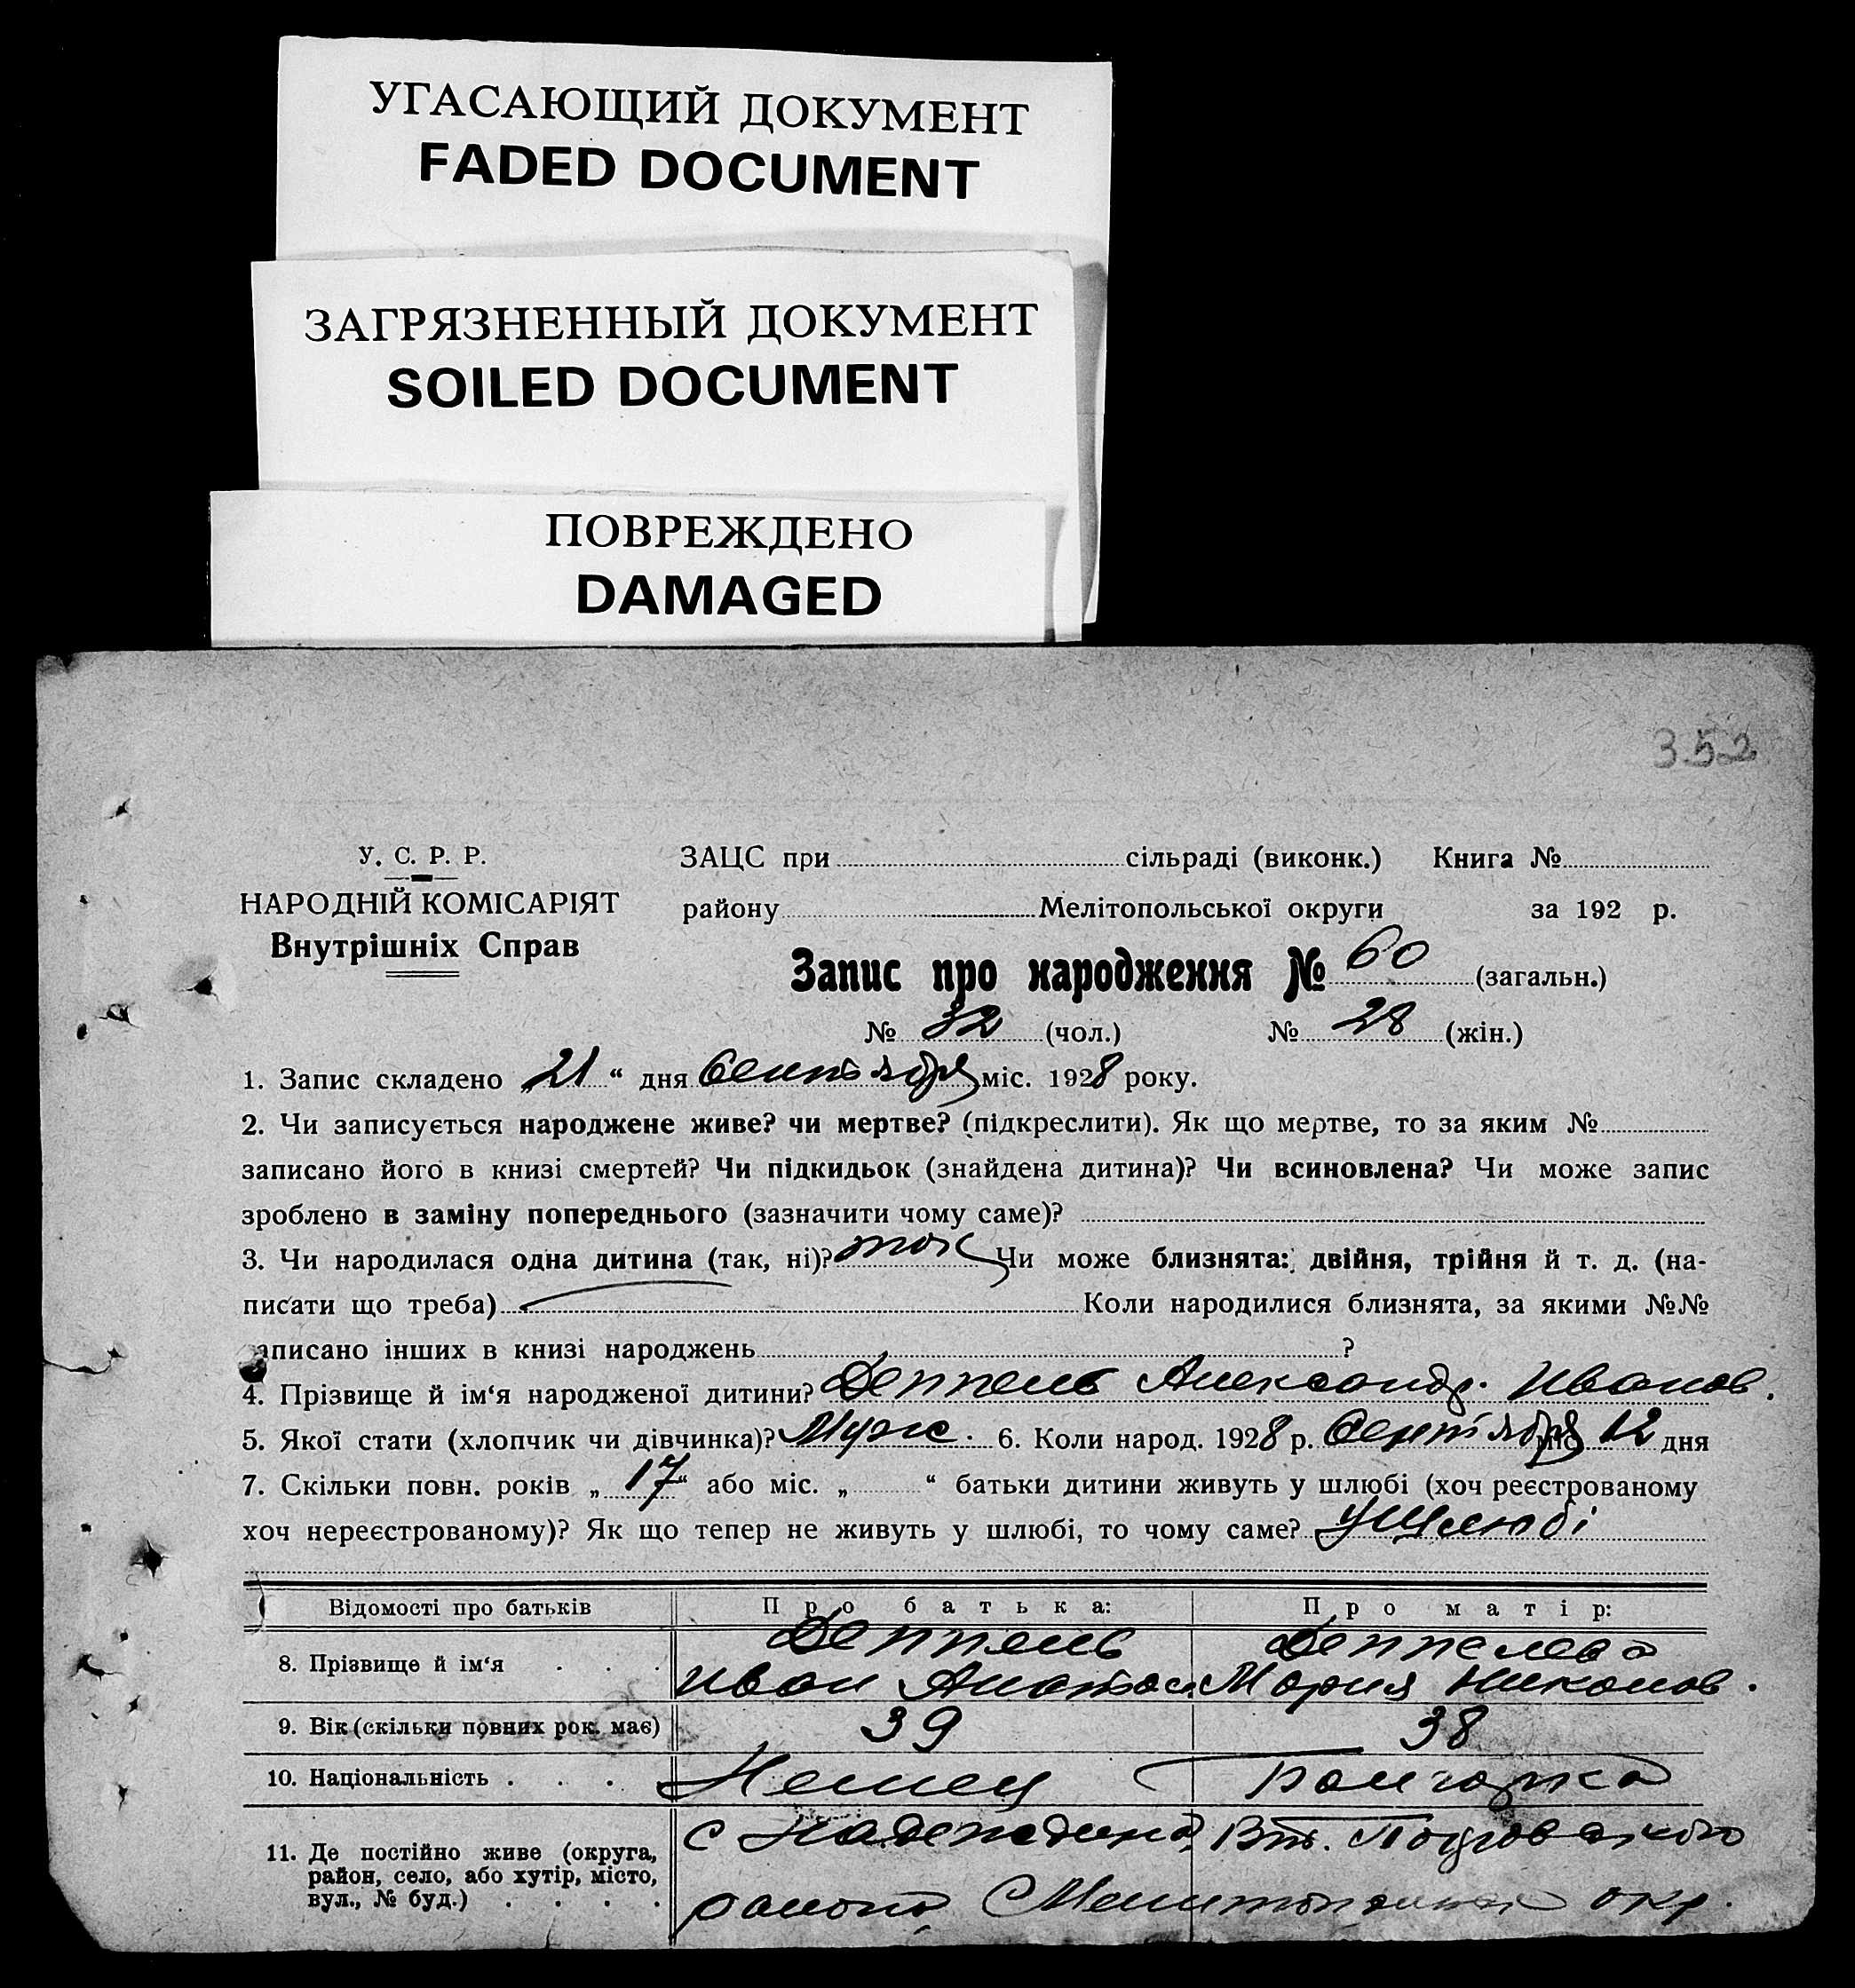 УГАСАЮЩИЙ ДОКУМЕНТ
FADED DOCUMENT
ЗАГРЯЗНЕННЫЙ ДОКУМЕНТ
SOILED DOCUMENT
ПОВРЕЖДЕНО
DAMAGED
352
У. С. Р. Р.
НАРОДНІЙ КОМІСАРІЯТ
Внутрішніх Справ
ЗАЦС при сільраді (виконк.) Книга №
району Мелітопольської округи за 192 р.
Запис про народження № 60 (загальн.)
№ 32 (чол.) № 28 (жін.)
1. Запис складено „21“ дня Сентября міс. 1928 року.
2. Чи записується народжене живе? чи мертве? (підкреслити). Як що мертве, то за яким №
записано його в книзі смертей? Чи підкидьок (знайдена дитина)? Чи всиновлена? Чи може запис
зроблено в заміну попереднього (зазначити чому саме)?
3. Чи народилася одна дитина (так, ні)? так Чи може близнята: двійня, трійня й т. д. (на-
писати що треба) Коли народилися близнята, за якими №№
записано інших в книзі народжень ?
4. Прізвище й ім‘я народженої дитини? Деппель Александр. Иванов.
5. Якої стати (хлопчик чи дівчинка)? Муж. 6. Коли народ. 1928 р. Сентября міс. 12 дня
7. Скільки повн. років „17“ або міс. „ “ батьки дитини живуть у шлюбі (хоч реєстрованому
хоч нереєстрованому)? Як що тепер не живуть у шлюбі, то чому саме? У шлюбі
Відомості про батьків Про батька: Про матір:
Деппель Деппелева
8. Прізвище й ім‘я . . . Иван Мария Никонов.
9. Вік (скільки повних рок. має) 39 38
10. Національність . . . Немец Болгарка
11. Де постійно живе (округа, с Надеждина
район, село, або хутір, місто,
вул., № буд.) . . . . району Мелитопольск окр.